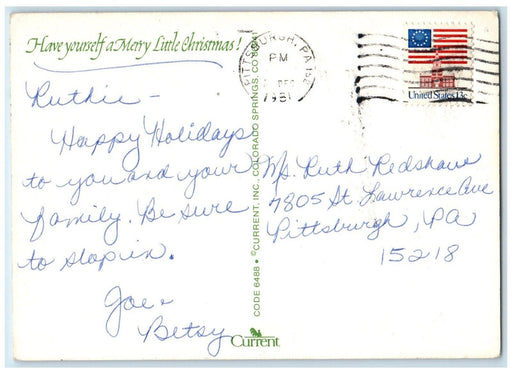 Have yourself a Merry Little Christmas!
Ruthie -
Happy Holidays
to you and your
family. Be sure
to stop in.
Joe &
Betsy
CODE 6488 • ©CURRENT, INC. COLORADO SPRINGS, CO
Current
PITTSBURGH, PA
PM
DEC
1981
United States 13c
Ms. Ruth Redshaw
7805 St. Lawrence Ave
Pittsburgh, PA
15218